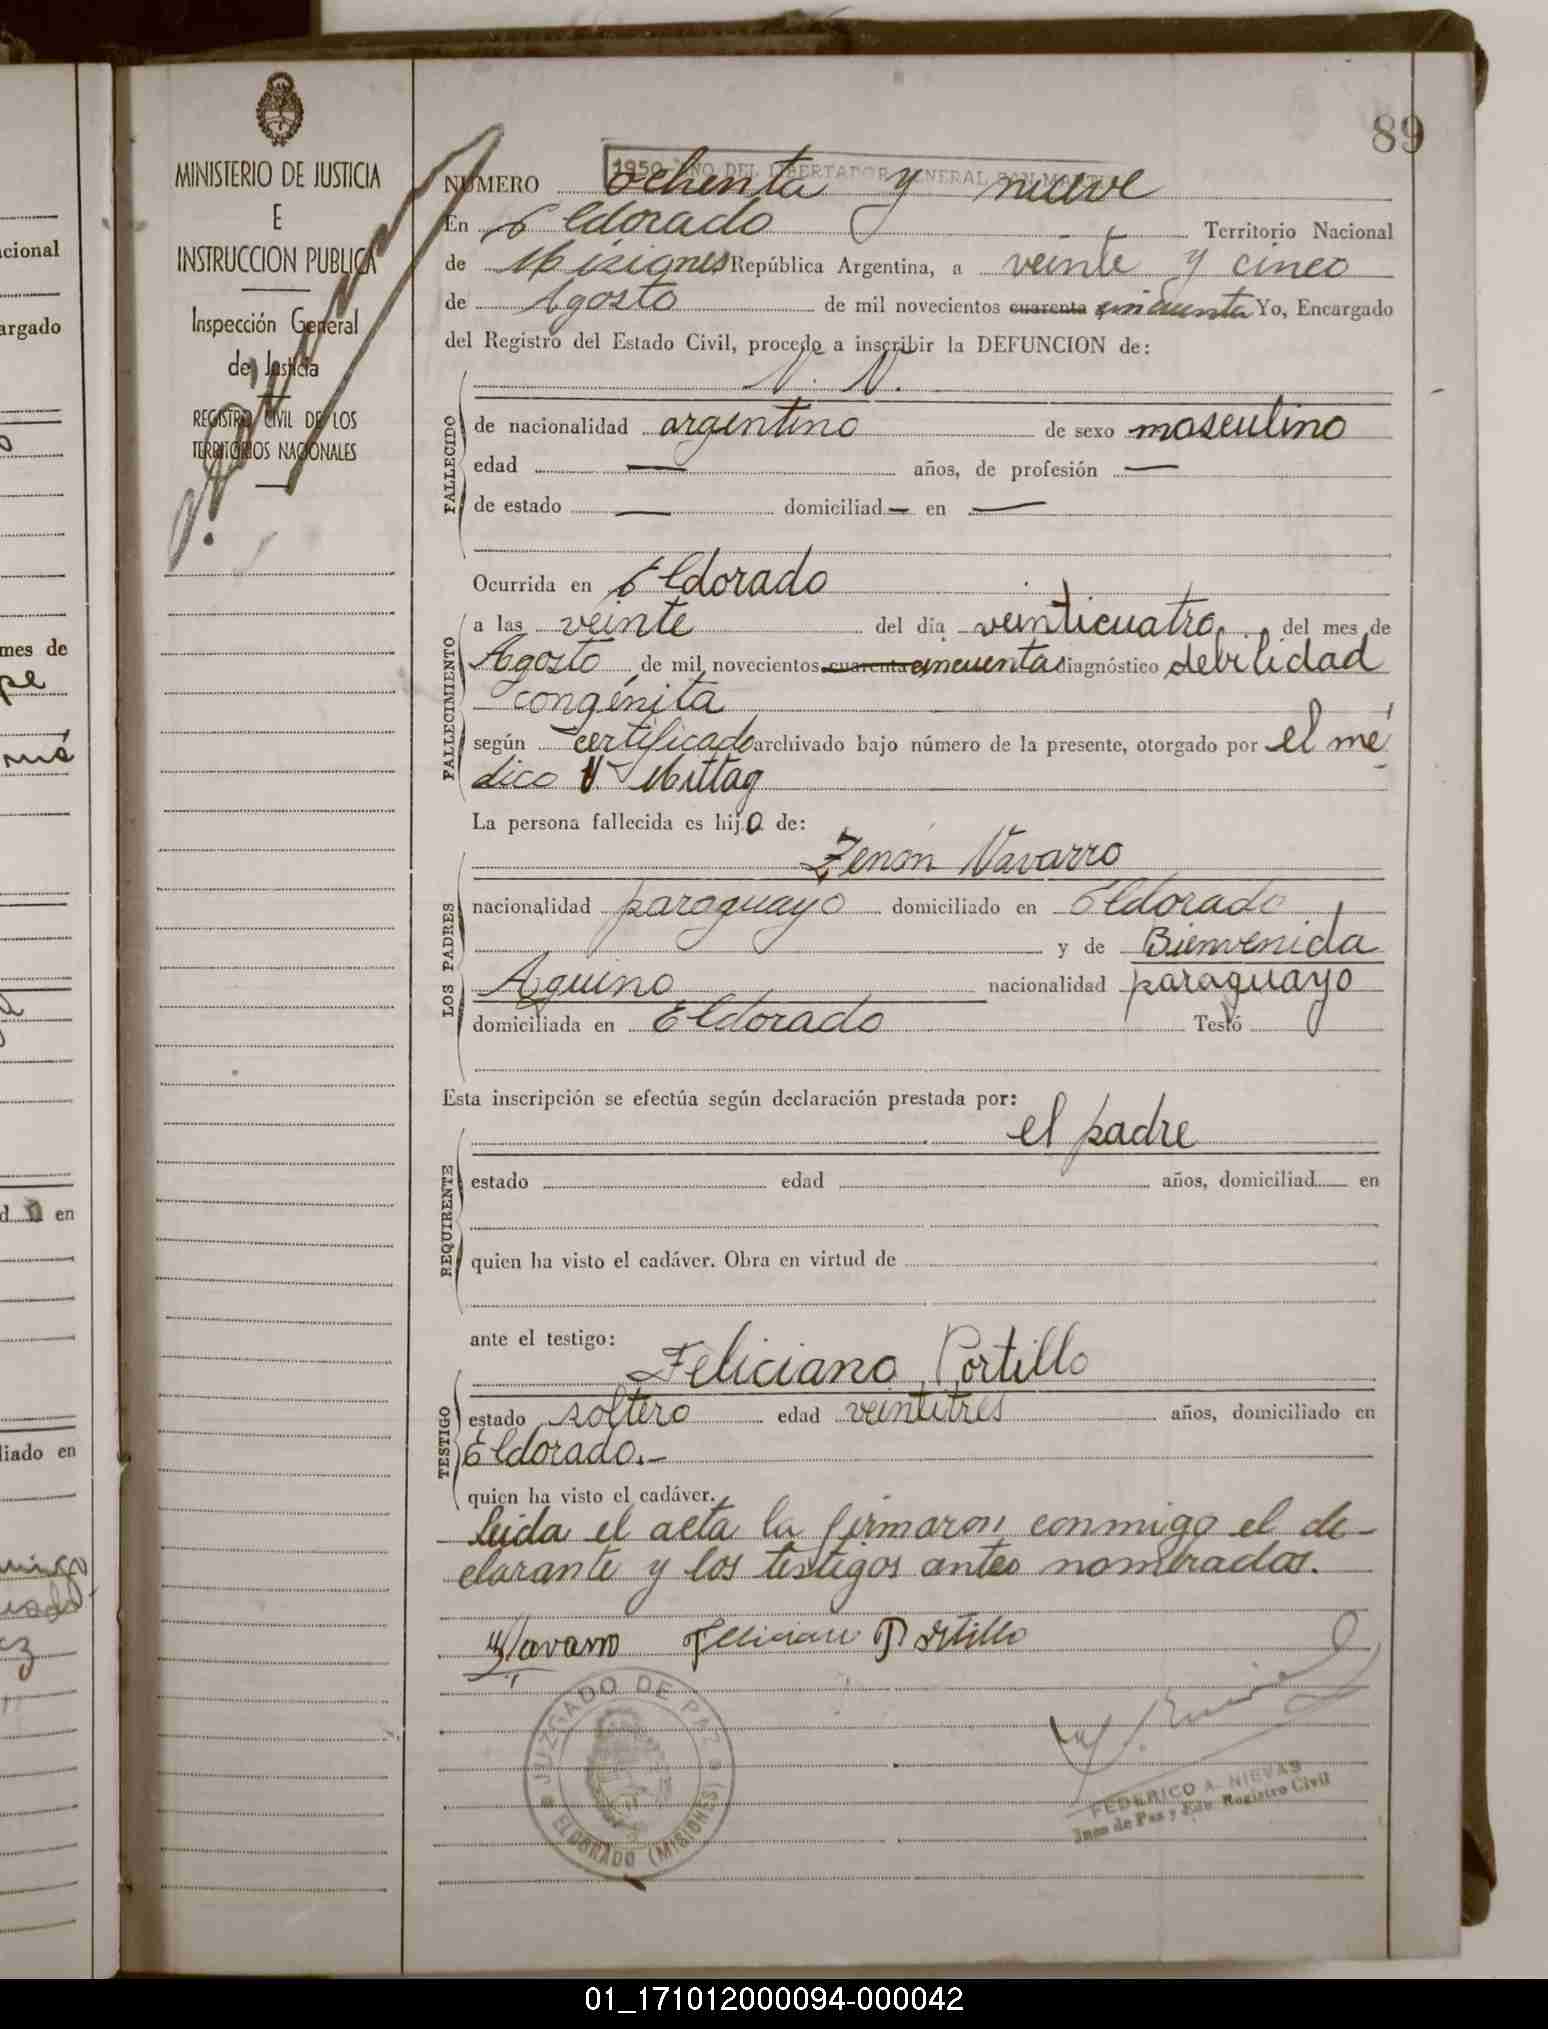 89
MINISTERIO DE JUSTICIA
E
INSTRUCCION PUBLICA
Inspección General
de Justicia
REGISTRO CIVIL DE LOS
TERRITORIOS NACIONALES
N. N.
1950 AÑO DEL LIBERTADOR GENERAL SAN MARTIN
NUMERO ochenta y nueve
En Eldorado Territorio Nacional
de Misiones República Argentina, a veinte y cinco
de Agosto de mil novecientos cuarenta cincuenta Yo, Encargado
del Registro del Estado Civil, procedo a inscribir la DEFUNCION de:
N. N.
FALLECIDO
de nacionalidad argentino de sexo masculino
edad — años, de profesión —
de estado — domiciliad— en —
Ocurrida en Eldorado
FALLECIMIENTO
a las veinte del día veinticuatro del mes de
Agosto de mil novecientos cuarenta cincuenta diagnóstico debilidad
congénita
según certificado archivado bajo número de la presente, otorgado por el mé
dico Mittag
La persona fallecida es hijo de:
LOS PADRES
Zenón Navarro
nacionalidad paraguayo domiciliado en Eldorado
y de Bienvenida
Aquino nacionalidad paraguayo
domiciliada en Eldorado Testó
Esta inscripción se efectúa según declaración prestada por:
REQUIRENTE
el padre
estado edad años, domiciliad en
quien ha visto el cadáver. Obra en virtud de
ante el testigo:
TESTIGO
Feliciano Portillo
estado soltero edad veintitres años, domiciliado en
Eldorado.-
quien ha visto el cadáver.
leida el acta la firmaron conmigo el de-
clarante y los testigos antes nombrados.
Navarro Felician Portillo
JUZGADO DE PAZ
ELDORADO (MISIONES)
FEDERICO A. NIEVAS
Juez de Paz y Enc. Registro Civil
cional
argado
mes de
en
liado en
01_171012000094-000042